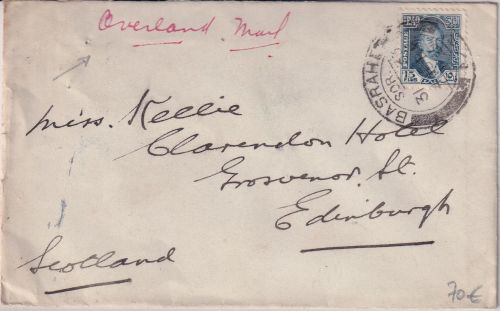 Overland Mail
BASRAH
15 15
Miss. Kellie
Clarendon Hotel
Grosvenor. St.
Edinburgh
Scotland
70€